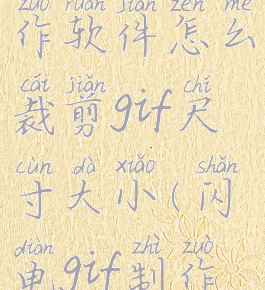 zuò ruǎn jiàn zěn me
作软件怎么
cái jiǎn chǐ
裁剪gif尺
cùn dà xiǎo shǎn
寸大小(闪
diàn zhì zuò
电gif制作